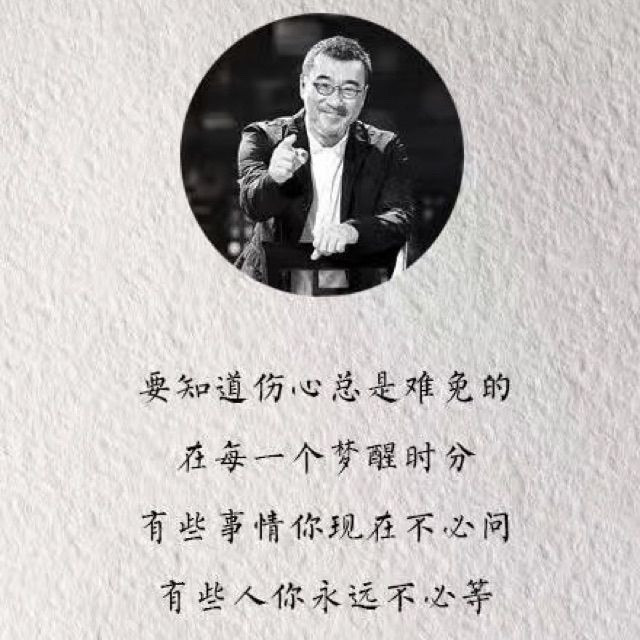 要知道伤心总是难免的
在每一个梦醒时分
有些事情你现在不必问
有些人你永远不必等